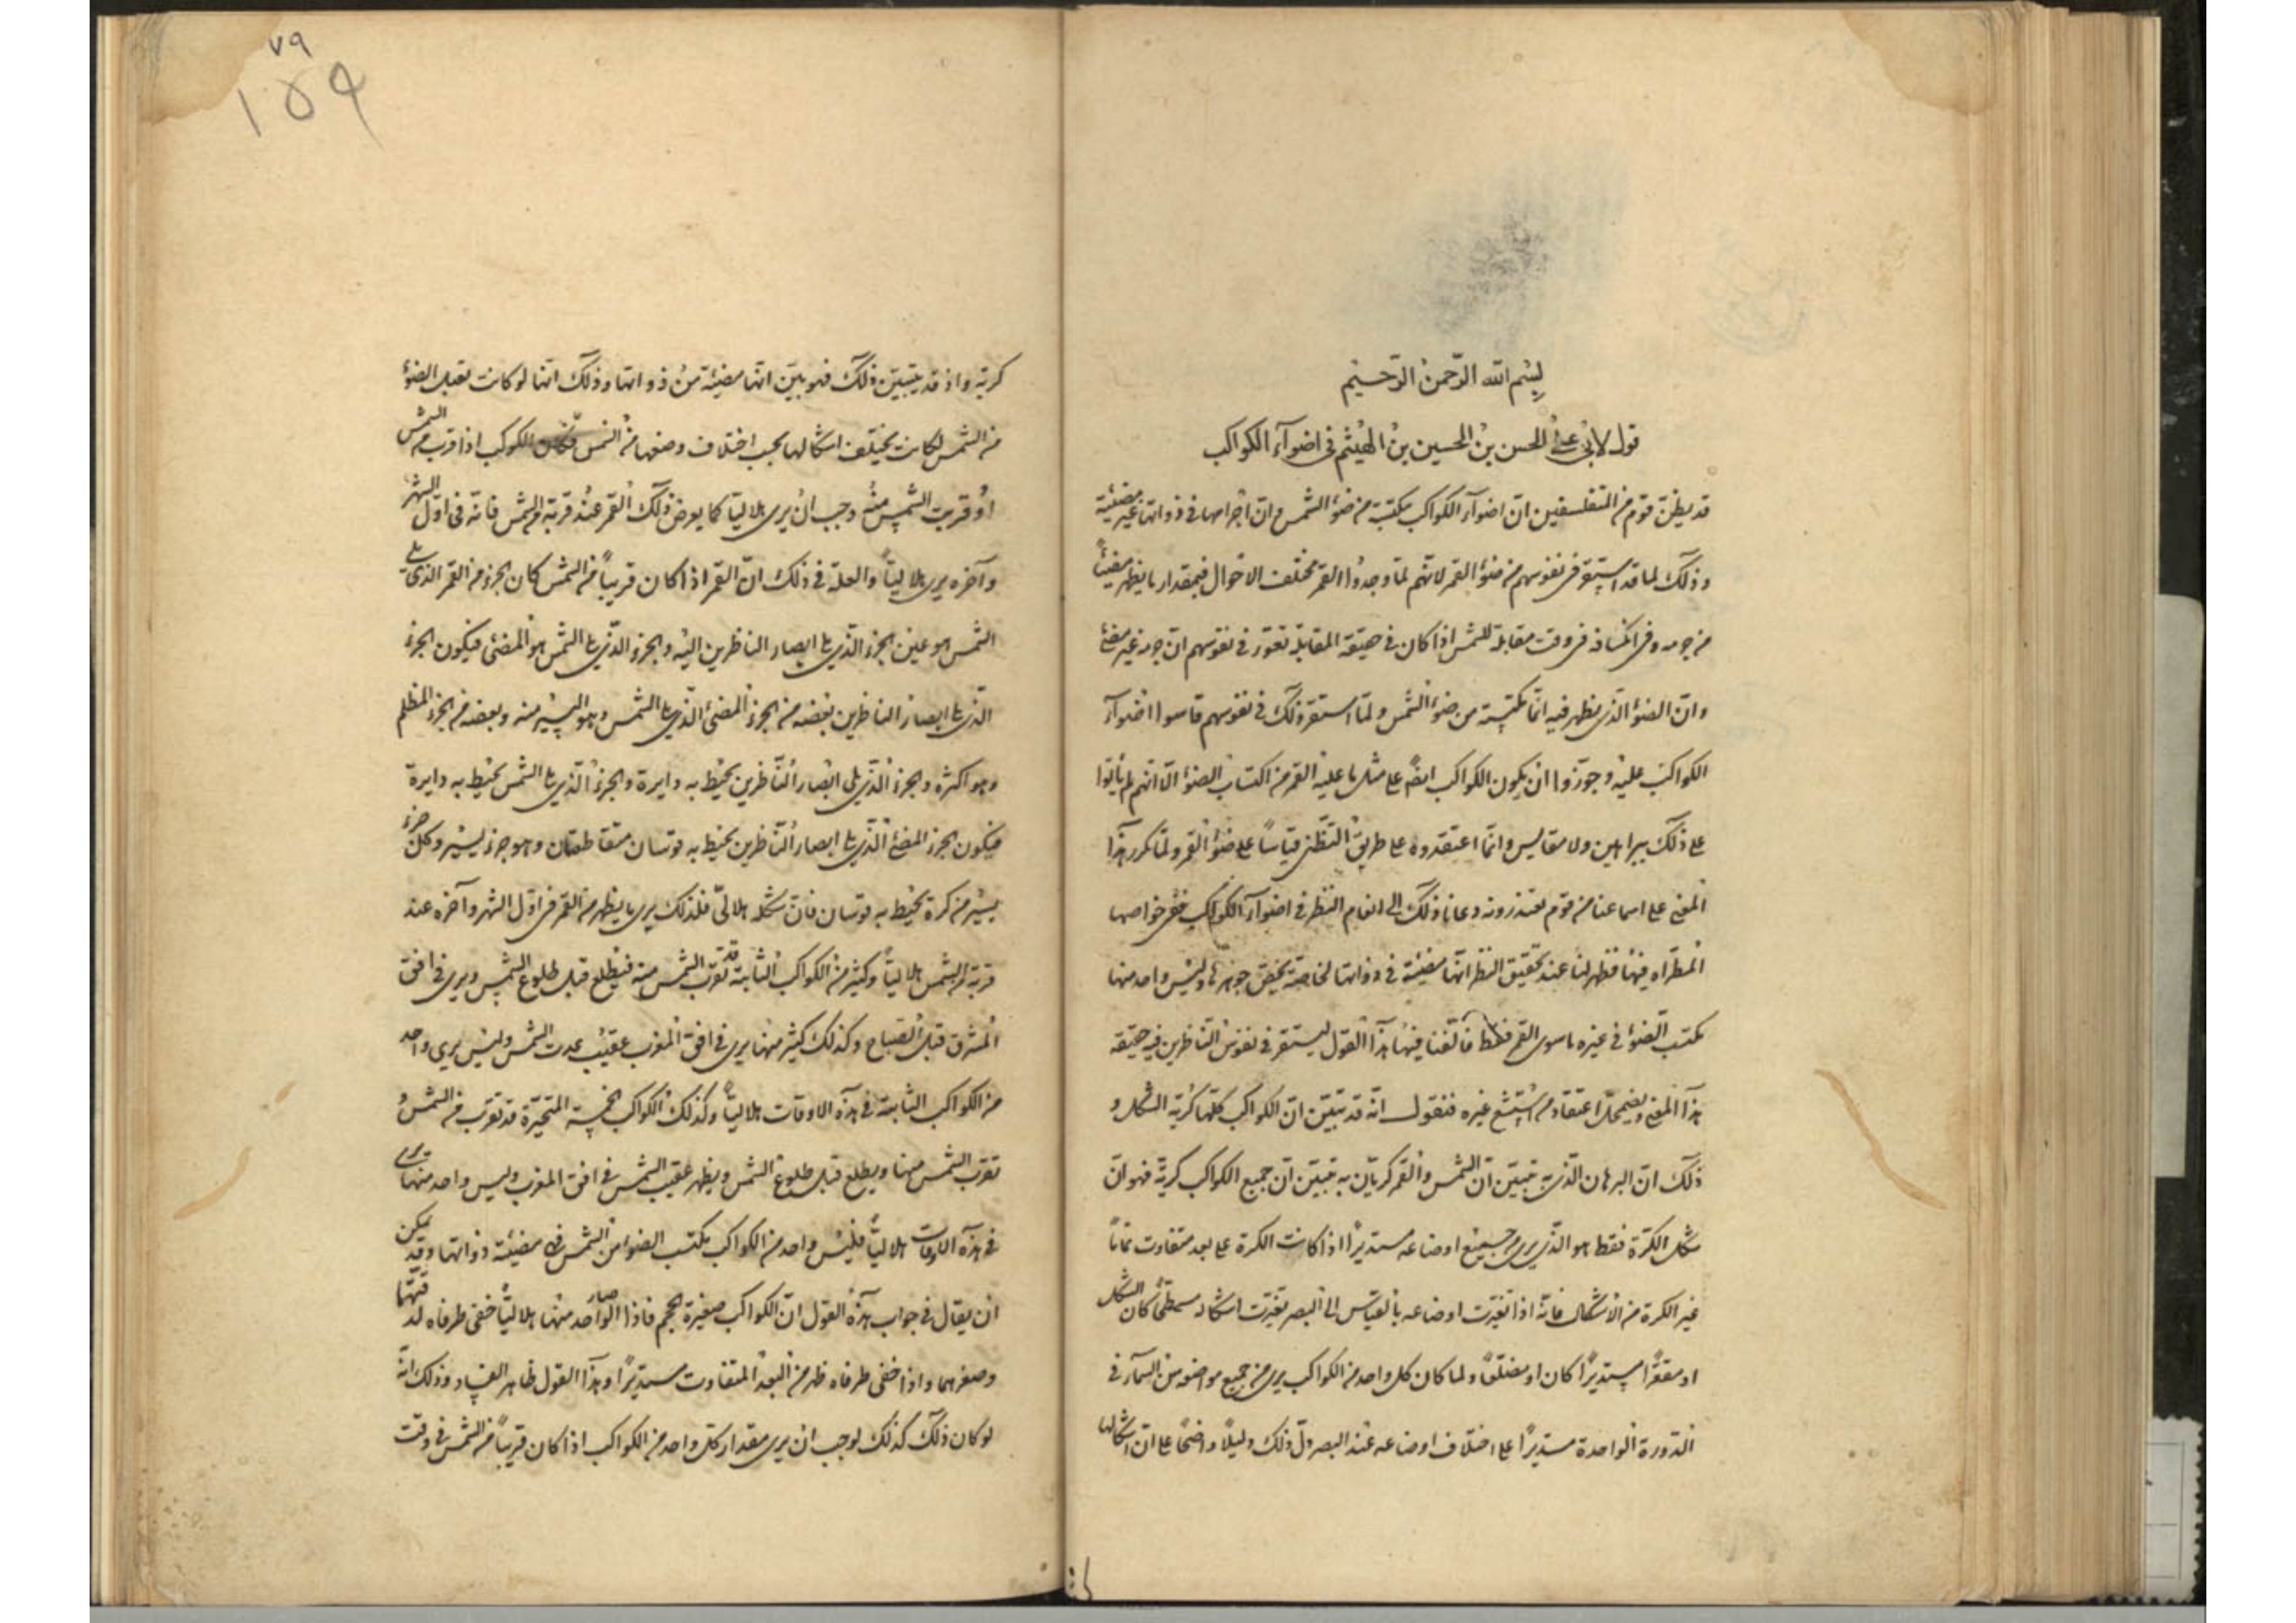 بسم الله الرحمن الرحيم
قول لابي علي الحسن بن الحسين بن الهيثم في اضوآء الكواكب
قد يظن قوم من المتفلسفين ان اضوآء الكواكب مكتسبة من ضوء الشمس وان اجرامها في ذواتها غير مضيئة
وذلك لما قد استقر في نفوسهم من ضوء القمر لانهم لما وجدوا القمر مختلف الاحوال فيمقدار ما يظهر مضيئاً
من جرمه وفي انكسافه في وقت مقابلة للشمس اذا كان في حقيقة المقابلة تقرر في نفوسهم ان جرمه غير مضئ
وان الضوء الذي يظهر فيه انما مكتسبة من ضوء الشمس ولما استقر ذلك في نفوسهم قاسوا اضوآء
الكواكب عليه وجوزوا ان يكون الكواكب ايضاً على مثل ما عليه القمر من اكتساب الضوء الا انهم لم يأتوا
على ذلك ببراهين ولا مقاييس وانما اعتقدوه على طريق التظني قياساً على ضوء القمر ولما تكرر هذا
المعنى على اسماعنا من قوم يعتذرونه دعانا ذلك الى انعام النظر في اضوآء الكواكب خواصها
المطراه فيها فظهر لنا عند تحقيق النظر انها مضيئة في ذواتها لخاصة يخص جوهرها وليس واحد منها
يكتسب الضوء في غيره ما سوى القمر فقط فألفنا فيها هذا القول ليستقر في نفوس الناظرين فيه حقيقة
هذا المعنى ويضمحل اعتقاد من غيره فنقول انه قد تبين ان الكواكب كلها كرية الشكل و
ذلك ان البرهان الذي به تبين ان الشمس والقمر كريان به تبين ان جميع الكواكب كرية فهو ان
شكل الكرة فقط هو الذي يرى من جميع اوضاعه مستديرا اذا كانت الكرة على بعد متفاوت فاما
غير الكرة من الاشكال فانه اذا تغيرت اوضاعه بالقياس الى البصر تغيرت اشكاله مسطحا كان الشكل
او مقعرا مستديرا كان او مضلعا ولما كان كل واحد من الكواكب يرى من جميع مواضعه من السمآء في
الدورة الواحدة مستديرا على اختلاف اوضاعه عند البصر دل ذلك دليلا واضحا على ان اشكالها
٧٩
١٥٩
كرية واذ قد يتبين ذلك فهو بين انها مضيئة من ذواتها وذلك انها لو كانت تقبل الضوء
من الشمس لكانت يختلف اشكالها بحسب اختلاف وضعها من الشمس فكان الكوكب اذا قرب من الشمس
او قربت الشمس منه وجب ان يرى هلاليا كما يعرض ذلك القمر عند قربه من الشمس فانه في اول الشهر
وآخره يرى هلالياً والعلة في ذلك ان القمر اذا كان قريباً من الشمس كان الجزء من القمر الذي يلي
الشمس هو غير الجزء الذي يلي ابصار الناظرين اليه والجزء الذي يلي الشمس هو المضئ فيكون الجزء
الذي يلي ابصار الناظرين بعضه من الجزء المضئ الذي يلي الشمس وهو اليسير منه وبعضه من الجزء المظلم
وهو اكثره والجزء الذي يلي ابصار الناظرين يحيط به دايرة والجزء الذي يلي الشمس يحيط به دايرة
فيكون الجزء المضئ الذي يلي ابصار الناظرين يحيط به قوسان متقاطعتان وهو جزء يسير وكل جزء
يسير من كرة يحيط به قوسان فان شكله هلالي فلذلك يرى ما يظهر من القمر في اول الشهر وآخره عند
قربه من الشمس هلالياً وكثير من الكواكب الثابتة قد تقرب الشمس منه فيطلع قبل طلوع الشمس ويرى في افق
المشرق قبل الصباح وكذلك كثير منها يرى في افق المغرب عقيب الشمس وليس يرى واحد
من الكواكب الثابتة في هذه الاوقات هلالياً وكذلك الكواكب الخمسة المتحيرة قد تقرب من الشمس و
تقرب الشمس منها ويطلع قبل طلوع الشمس ويظهر عقيب الشمس في افق المغرب وليس واحد منها يرى
في هذه الاوقات هلالياً فليس واحد من الكواكب يكتسب الضوء من الشمس فهي مضيئة ذواتها وقد يمكن
ان يقال في جواب هذه القول ان الكواكب صغيرة الحجم فاذا صار الواحد منها هلالياً خفى طرفاه لدقتهما
وصغرهما واذا خفى طرفاه ظهر من البعد المتفاوت مستديرا وهذا القول ظاهر الفساد وذلك انه
لو كان ذلك كذلك لوجب ان يرى مقدار كل واحد من الكواكب اذا كان قريباً من الشمس في وقت